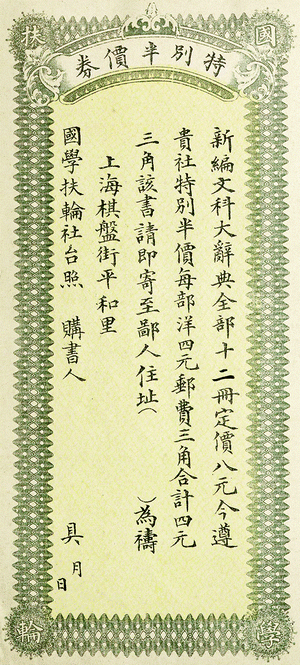 國
扶
特別半價券
新編文科大辭典全部十二冊定價八元今遵
貴社特別半價每部洋四元郵費三角合計四元
三角該書請即寄至鄙人住址(　　)為禱
上海棋盤街平和里
國學扶輪社台照　購書人
具　月　日
學
輪